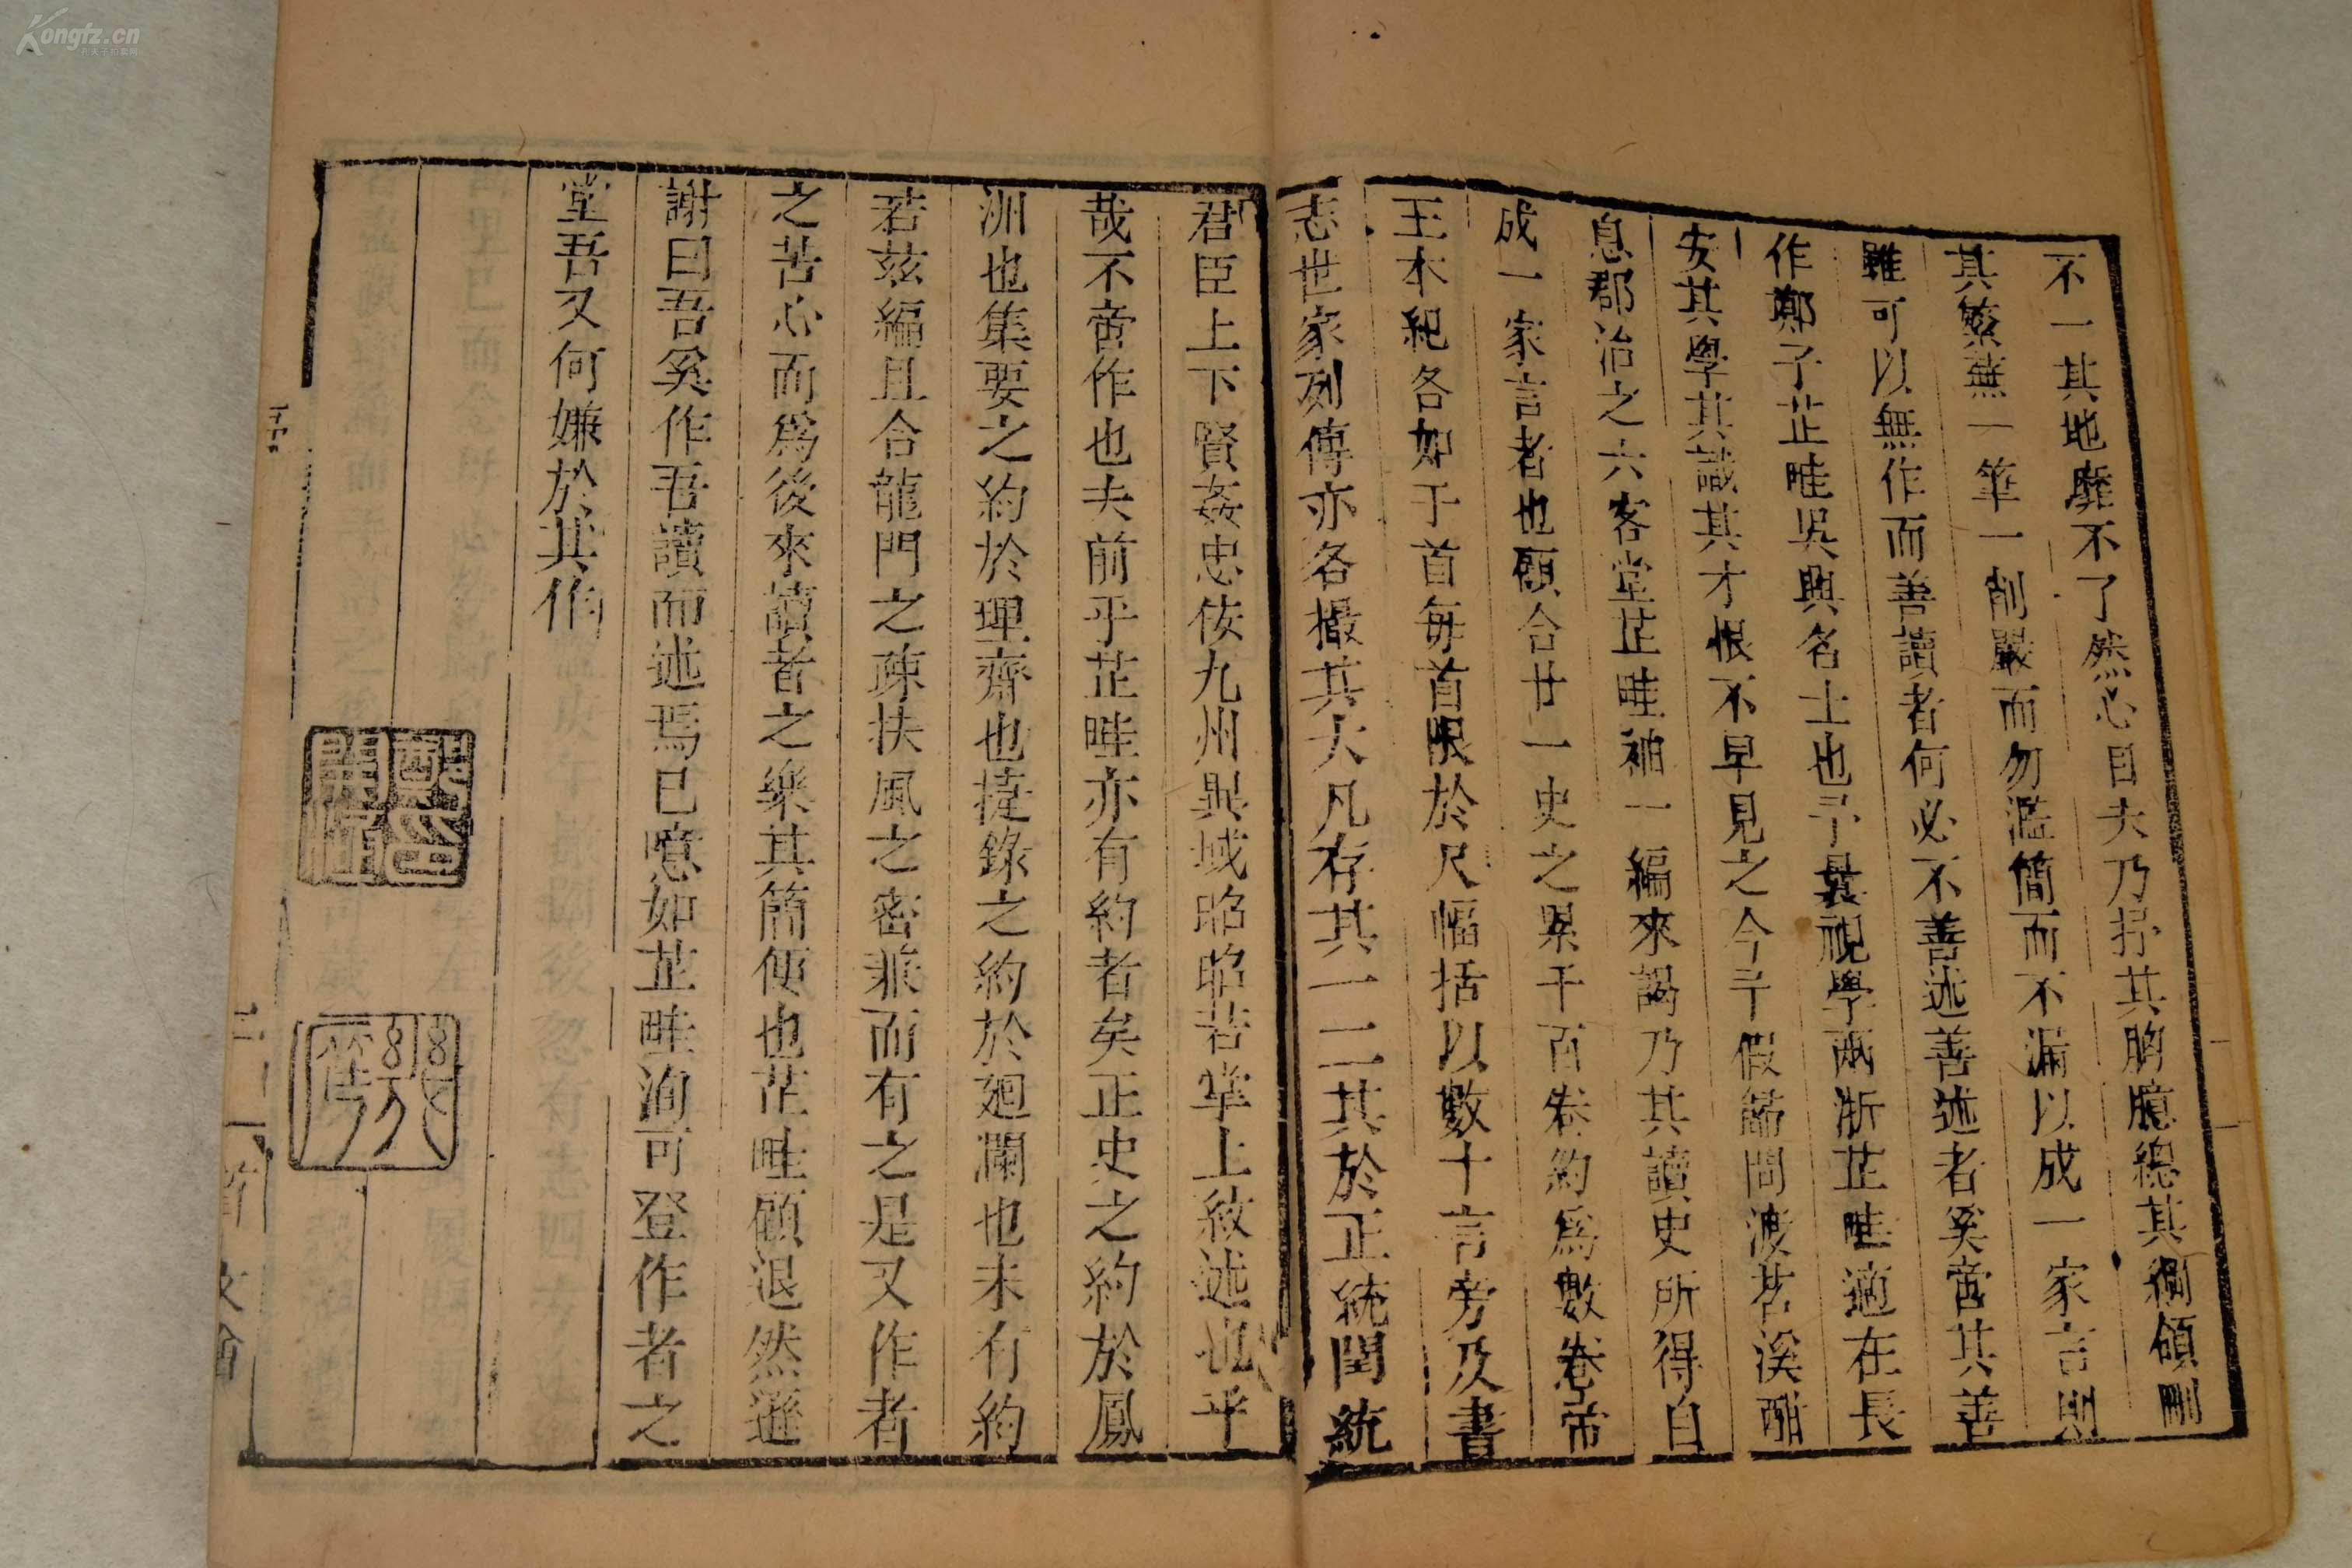 不一其地靡不了然心目夫乃抒其胸臆總其綱領刪
其繁蕪一筆一削嚴而勿濫簡而不漏以成一家言則
雖可以無作而善讀者何必不善述善述者奚啻其善
作鄭子芷畦吳興名士也予曩視學兩浙芷畦適在長
安其學其識其才恨不早見之今予假歸問渡苕溪醋
息郡治之六客堂芷畦袖一編來謁乃其讀史所得自
成一家言者也顧合廿一史之累千百卷約為數卷帝
王本紀各如于首每首限於尺幅括以數十言旁及書
志世家列傳亦各撮其大凡存其一二其於正統閏統
君臣上下賢姦忠佞九州異域昭昭若掌上紋述也乎
哉不啻作也夫前乎芷畦亦有約者矣正史之約於鳳
洲也集要之約於理齋也捷錄之約於廻瀾也未有約
若茲編且合龍門之疎扶風之密兼而有之是又作者
之苦心而為後來讀者之樂其簡便也芷畦顧退然遜
謝曰吾奚作吾讀而述焉已噫如芷畦洵可登作者之
堂吾又何嫌於其作
Kongfz.cn